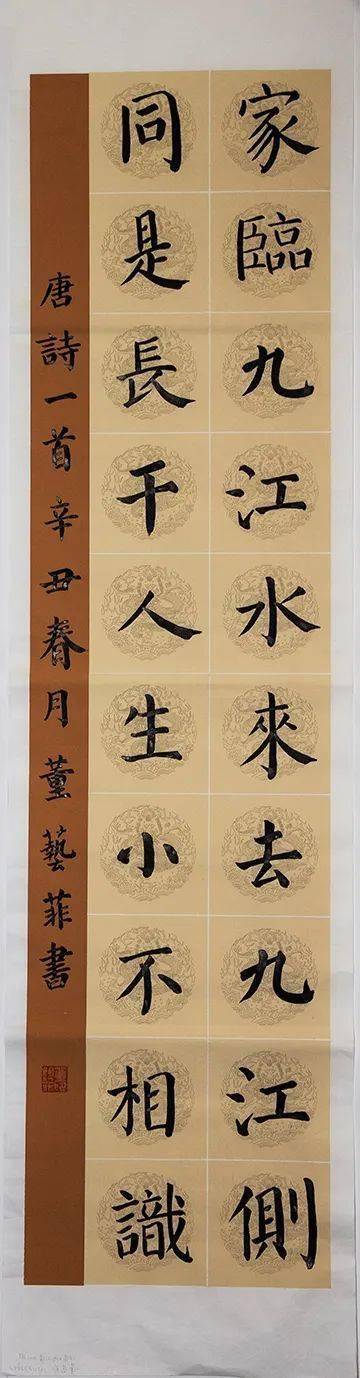 家臨九江水來去九江側
同是長干人生小不相識
唐詩一首辛丑春月董藝菲書